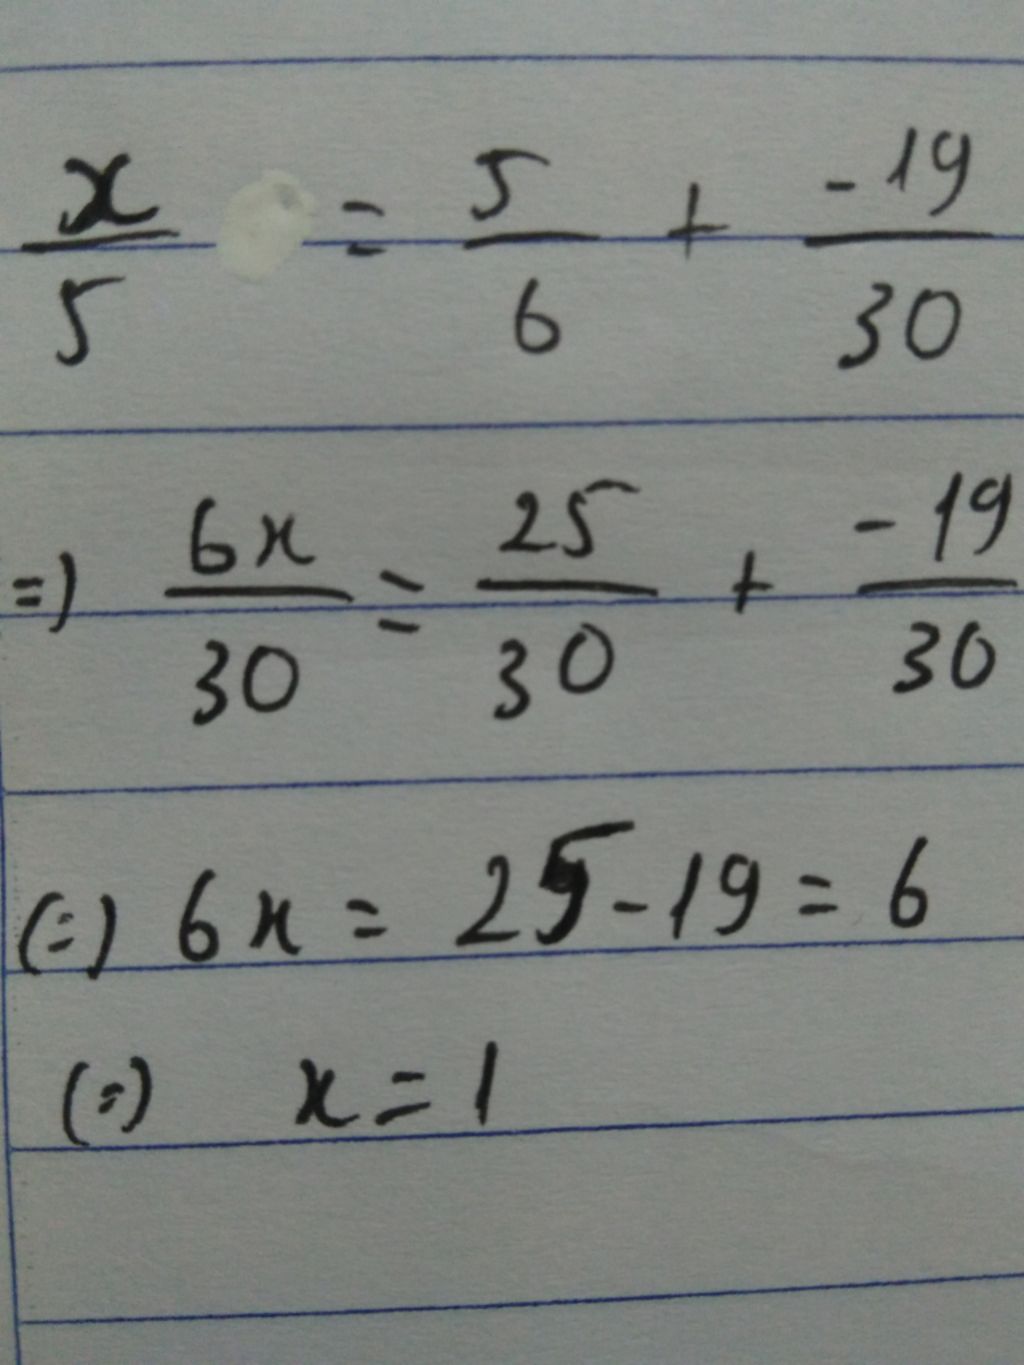 x/5 = 5/6 + -19/30
=) 6x/30 = 25/30 + -19/30
(=) 6x = 25 - 19 = 6
(=) x = 1